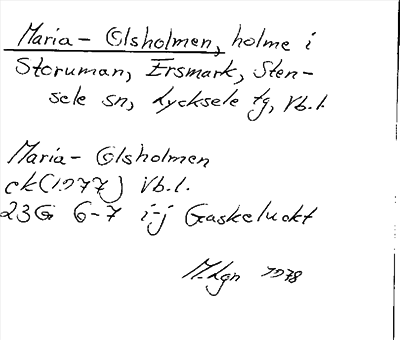 Maria-Olsholmen, holme i
Storuman, Ersmark, Sten-
sele sn, Lycksele tg, Vb.l.
Maria-Olsholmen
ek(1977) Vb.l.
23G 6-7 i-j Gaskeluokt
M.Lgn 1978